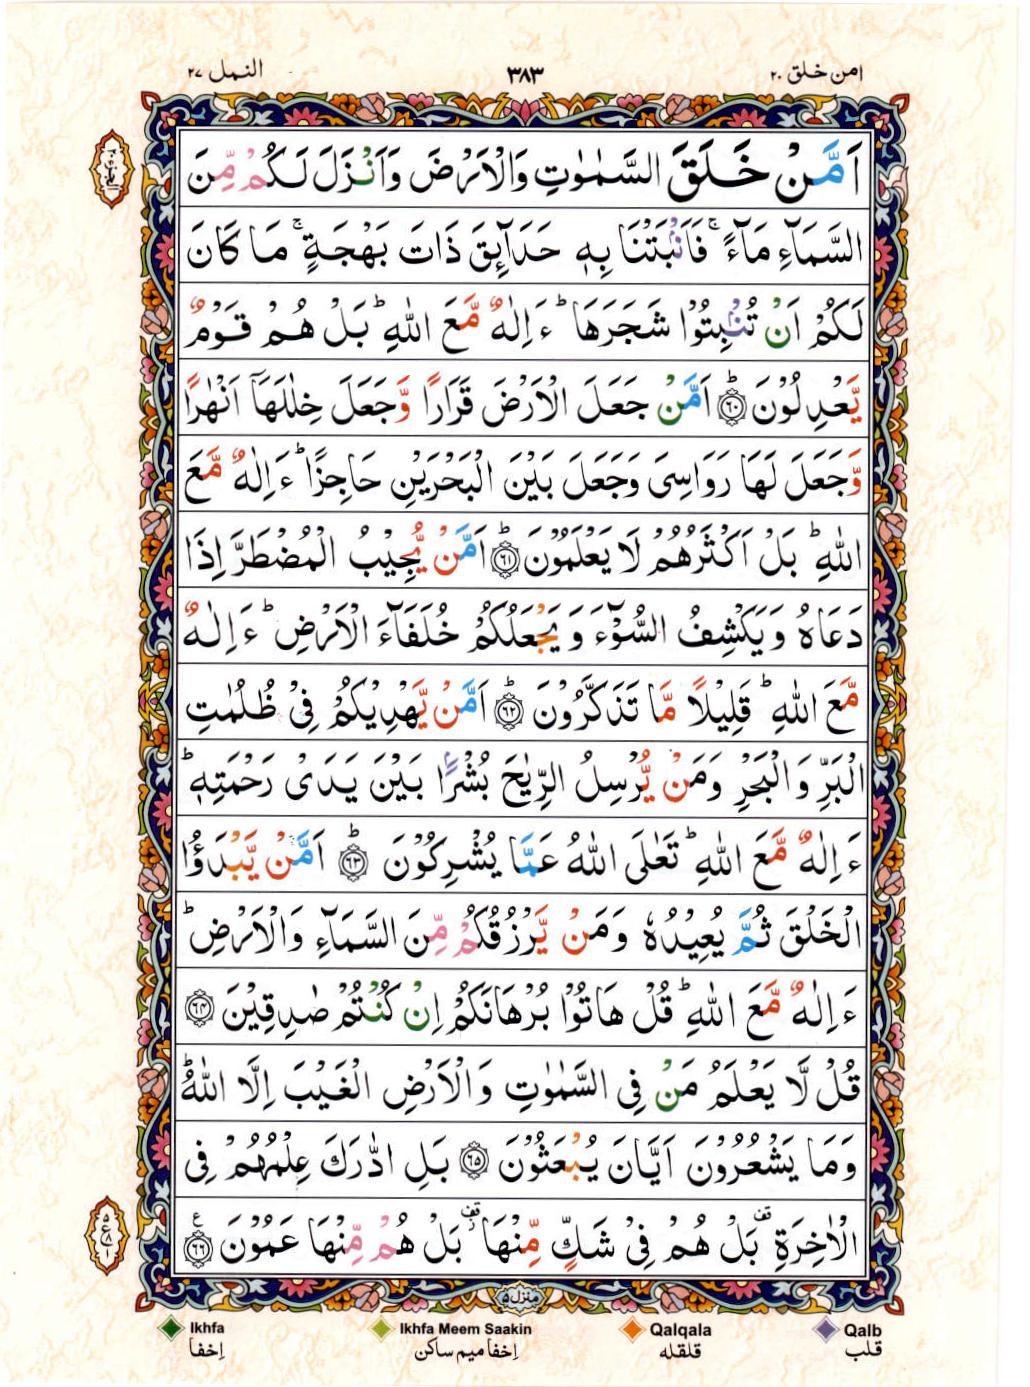 اَمَّنْ خَلَقَ ٢٠ ٣٨٣ النمل ٢٧
اَمَّنْ خَلَقَ السَّمٰوٰتِ وَالْاَرْضَ وَاَنْزَلَ لَكُمْ مِّنَ
السَّمَآءِ مَآءً ۚ فَاَنْۢبَتْنَا بِهٖ حَدَآئِقَ ذَاتَ بَهْجَةٍ ۚ مَا كَانَ
لَكُمْ اَنْ تُنْۢبِتُوْا شَجَرَهَا ؕ ءَاِلٰهٌ مَّعَ اللّٰهِ ؕ بَلْ هُمْ قَوْمٌ
يَّعْدِلُوْنَ ؕ ﴿٦٠﴾ اَمَّنْ جَعَلَ الْاَرْضَ قَرَارًا وَّجَعَلَ خِلٰلَهَاۤ اَنْهٰرًا
وَّجَعَلَ لَهَا رَوَاسِىَ وَجَعَلَ بَيْنَ الْبَحْرَيْنِ حَاجِزًا ؕ ءَاِلٰهٌ مَّعَ
اللّٰهِ ؕ بَلْ اَكْثَرُهُمْ لَا يَعْلَمُوْنَ ؕ ﴿٦١﴾ اَمَّنْ يُّجِيْبُ الْمُضْطَرَّ اِذَا
دَعَاهُ وَيَكْشِفُ السُّوْٓءَ وَيَجْعَلُكُمْ خُلَفَآءَ الْاَرْضِ ؕ ءَاِلٰهٌ
مَّعَ اللّٰهِ ؕ قَلِيْلًا مَّا تَذَكَّرُوْنَ ؕ ﴿٦٢﴾ اَمَّنْ يَّهْدِيْكُمْ فِىْ ظُلُمٰتِ
الْبَرِّ وَالْبَحْرِ وَمَنْ يُّرْسِلُ الرِّيٰحَ بُشْرًۢا بَيْنَ يَدَىْ رَحْمَتِهٖ ؕ
ءَاِلٰهٌ مَّعَ اللّٰهِ ؕ تَعٰلَى اللّٰهُ عَمَّا يُشْرِكُوْنَ ؕ ﴿٦٣﴾ اَمَّنْ يَّبْدَؤُا
الْخَلْقَ ثُمَّ يُعِيْدُهٗ وَمَنْ يَّرْزُقُكُمْ مِّنَ السَّمَآءِ وَالْاَرْضِ ؕ
ءَاِلٰهٌ مَّعَ اللّٰهِ ؕ قُلْ هَاتُوْا بُرْهَانَكُمْ اِنْ كُنْتُمْ صٰدِقِيْنَ ﴿٦٤﴾
قُلْ لَّا يَعْلَمُ مَنْ فِى السَّمٰوٰتِ وَالْاَرْضِ الْغَيْبَ اِلَّا اللّٰهُ ؕ
وَمَا يَشْعُرُوْنَ اَيَّانَ يُبْعَثُوْنَ ﴿٦٥﴾ بَلِ ادّٰرَكَ عِلْمُهُمْ فِى
الْاٰخِرَةِ قف بَلْ هُمْ فِىْ شَكٍّ مِّنْهَا قف بَلْ هُمْ مِّنْهَا عَمُوْنَ ﴿٦٦﴾ ع
٥ ع ٨ ١
منزل ٥
Ikhfa Ikhfa Meem Saakin Qalqala Qalb
اِخفا اِخفا میم ساکن قلقله قلب